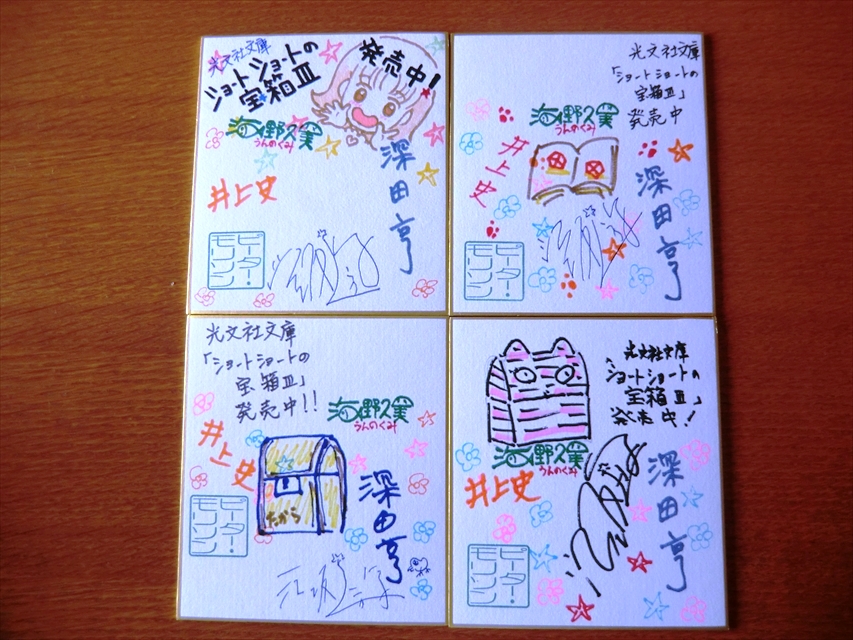 光文社文庫
ショートショートの
宝箱Ⅲ
発売中!
海野久実
うんのくみ
深田亨
井上史
ピーター・
モリソン
光文社文庫
「ショートショートの
宝箱Ⅲ」
発売中
海野久実
うんのくみ
井上史
深田亨
ピーター・
モリソン
光文社文庫
「ショートショートの
宝箱Ⅲ」
発売中!!
海野久実
うんのくみ
井上史
たから
深田亨
ピーター・
モリソン
光文社文庫
「ショートショートの
宝箱Ⅲ」
発売中!
海野久実
うんのくみ
井上史
深田亨
ピーター・
モリソン